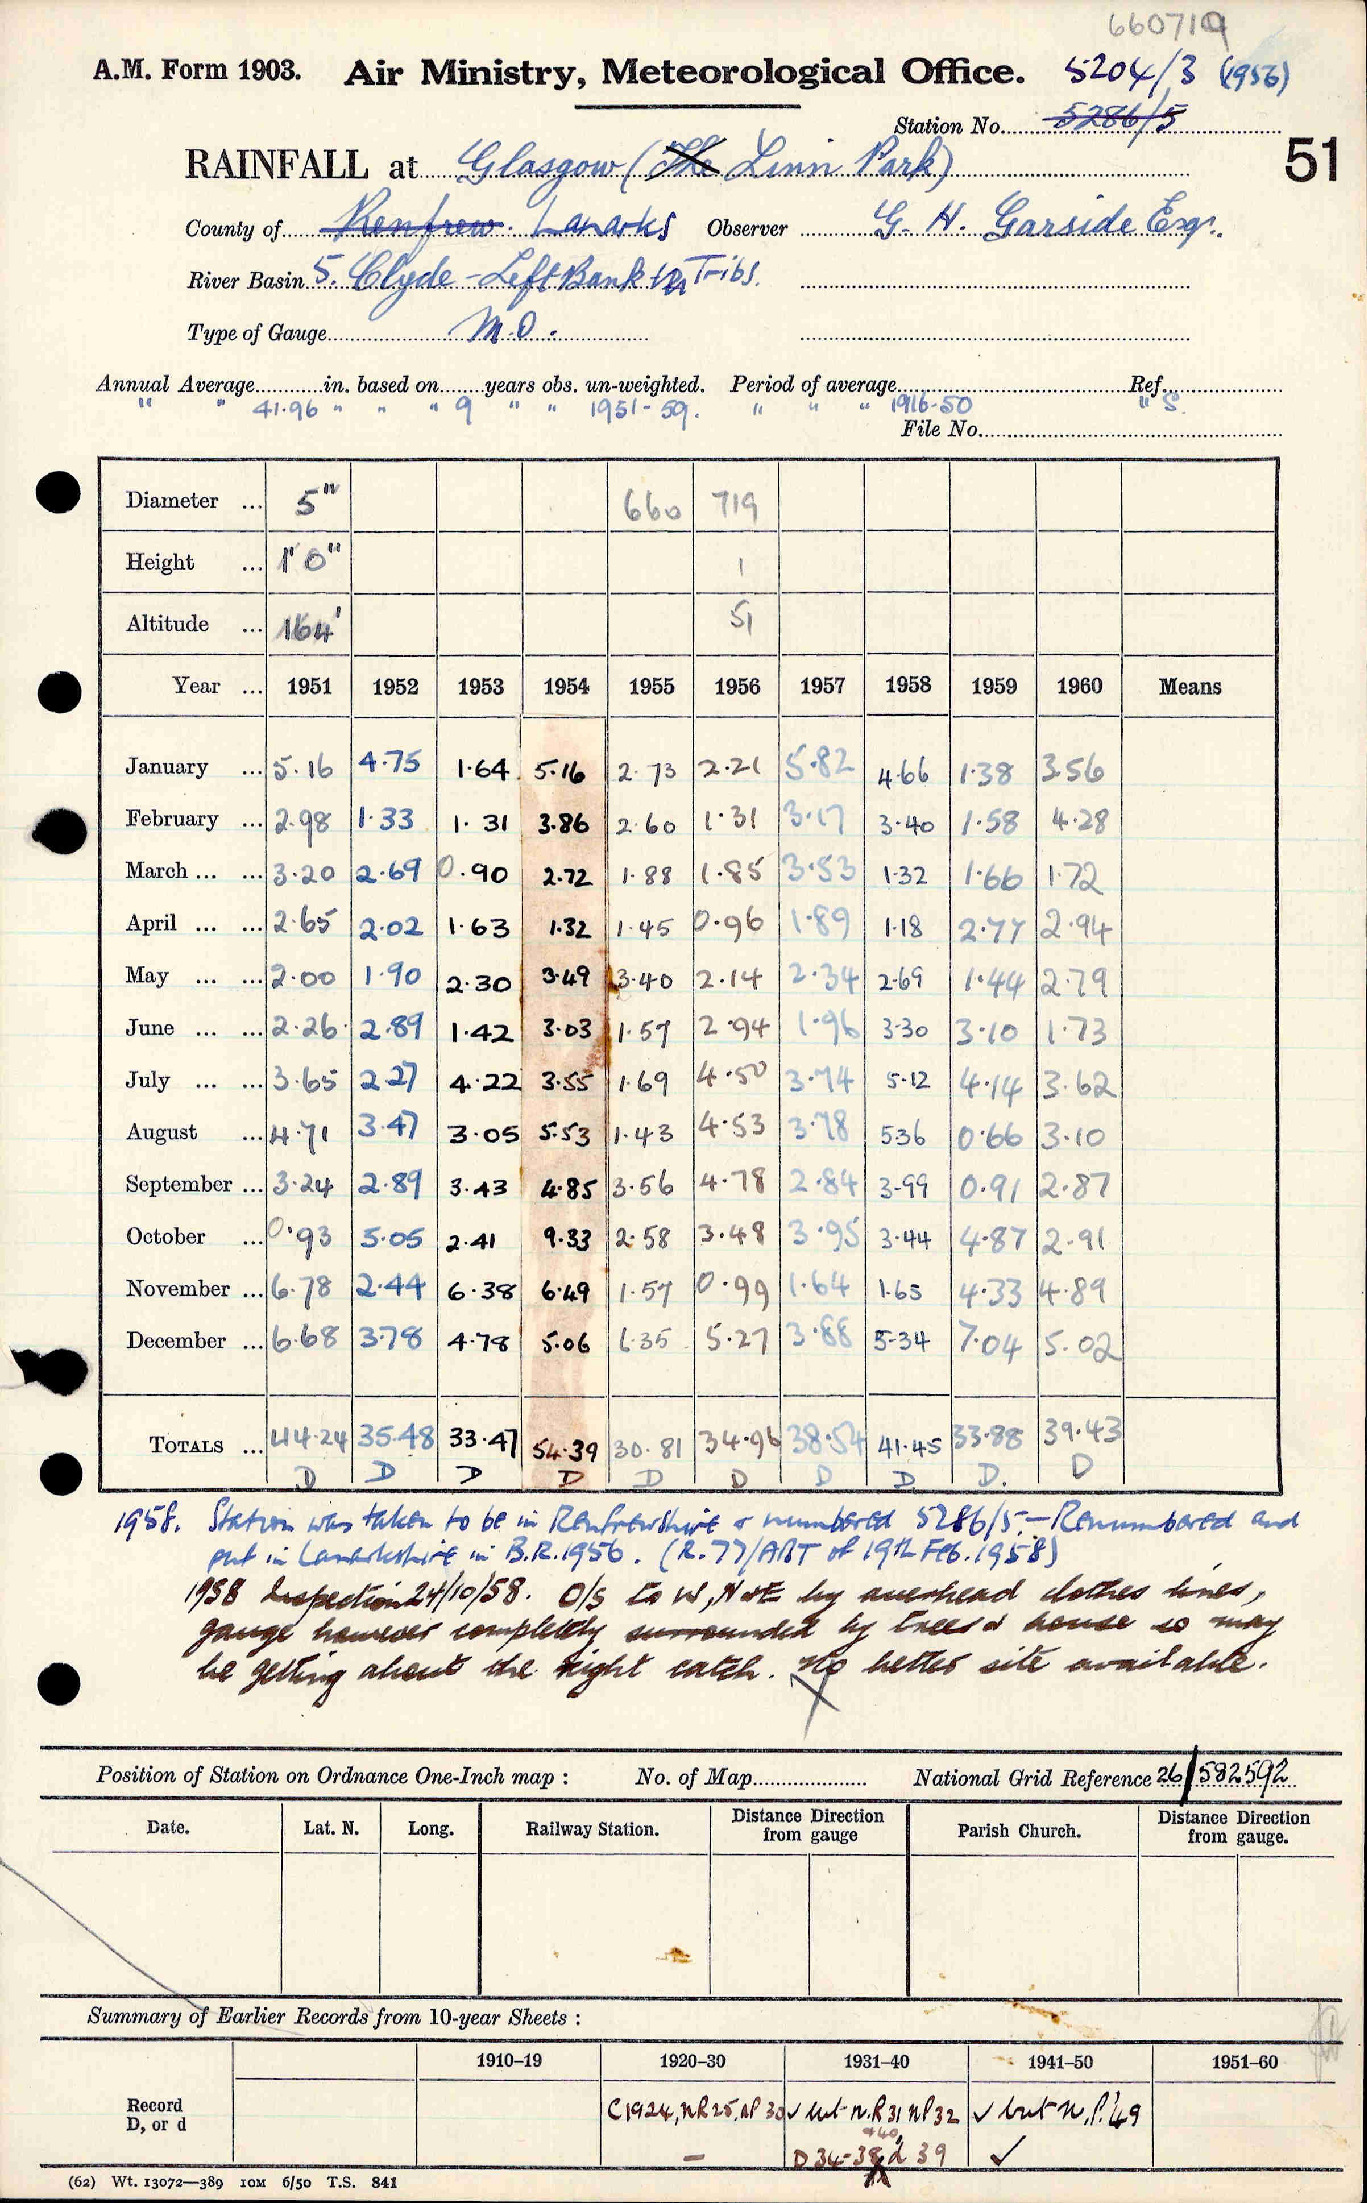 660719
A.M. Form 1903. Air Ministry, Meteorological Office. 5204/3 (1956)
Station No. 5286/5
51
RAINFALL at Glasgow (The Linn Park)
County of Renfrew. Lanarks Observer G. H. Garside Esq.
River Basin 5. Clyde - Left Bank Tribs.
Type of Gauge M.O.
Annual Average in. based on years obs. un-weighted. Period of average Ref.
" " 41.96 " " " 9 " " 1951-59. " " " 1916-50 " S.
File No.
Diameter ... 5" 660 719
Height ... 1'0" 1
Altitude ... 164' 51
Year ... 1951 1952 1953 1954 1955 1956 1957 1958 1959 1960 Means
January ... 5.16 4.75 1.64 5.16 2.73 2.21 5.82 4.66 1.38 3.56
February ... 2.98 1.33 1.31 3.86 2.60 1.31 3.17 3.40 1.58 4.28
March ... ... 3.20 2.69 0.90 2.72 1.88 1.85 3.53 1.32 1.66 1.72
April ... ... 2.65 2.02 1.63 1.32 1.45 0.96 1.89 1.18 2.77 2.94
May ... ... 2.00 1.90 2.30 3.49 3.40 2.14 2.34 2.69 1.44 2.79
June ... ... 2.26 2.89 1.42 3.03 1.57 2.94 1.96 3.30 3.10 1.73
July ... ... 3.65 2.27 4.22 3.55 1.69 4.50 3.74 5.12 4.14 3.62
August ... 4.71 3.47 3.05 5.53 1.43 4.53 3.78 5.36 0.66 3.10
September ... 3.24 2.89 3.43 4.85 3.56 4.78 2.84 3.99 0.91 2.87
October ... 0.93 5.05 2.41 9.33 2.58 3.48 3.95 3.44 4.87 2.91
November ... 6.78 2.44 6.38 6.49 1.57 0.99 1.64 1.65 4.33 4.89
December ... 6.68 3.78 4.78 5.06 6.35 5.27 3.88 5.34 7.04 5.02
TOTALS ... 44.24 35.48 33.47 54.39 30.81 34.96 38.54 41.45 33.88 39.43
D D D D D D D D D. D
1958. Station was taken to be in Renfrewshire & numbered 5286/5. - Renumbered and
put in Lanarkshire in B.R. 1956. (R.77/ABT of 19th Feb. 1958)
1958 Inspection 24/10/58. O/S to W, N & E by overhead clothes lines,
gauge however completely surrounded by trees & house so may
be getting about the right catch. No better site available.
Position of Station on Ordnance One-Inch map : No. of Map National Grid Reference 26/582592
Date. Lat. N. Long. Railway Station. Distance Direction from gauge Parish Church. Distance Direction from gauge.
Summary of Earlier Records from 10-year Sheets :
1910–19 1920–30 1931–40 1941–50 1951–60
Record D, or d
C1924, NR25, NP 30 ✓ but N.R 31 NP 32 ✓ but N.P. '49
– D 34-38, d 39 ✓
(62) Wt. 13072—389 10M 6/50 T.S. 841